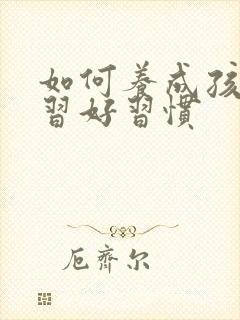 如何養成孩
習好習慣
厄齊尔